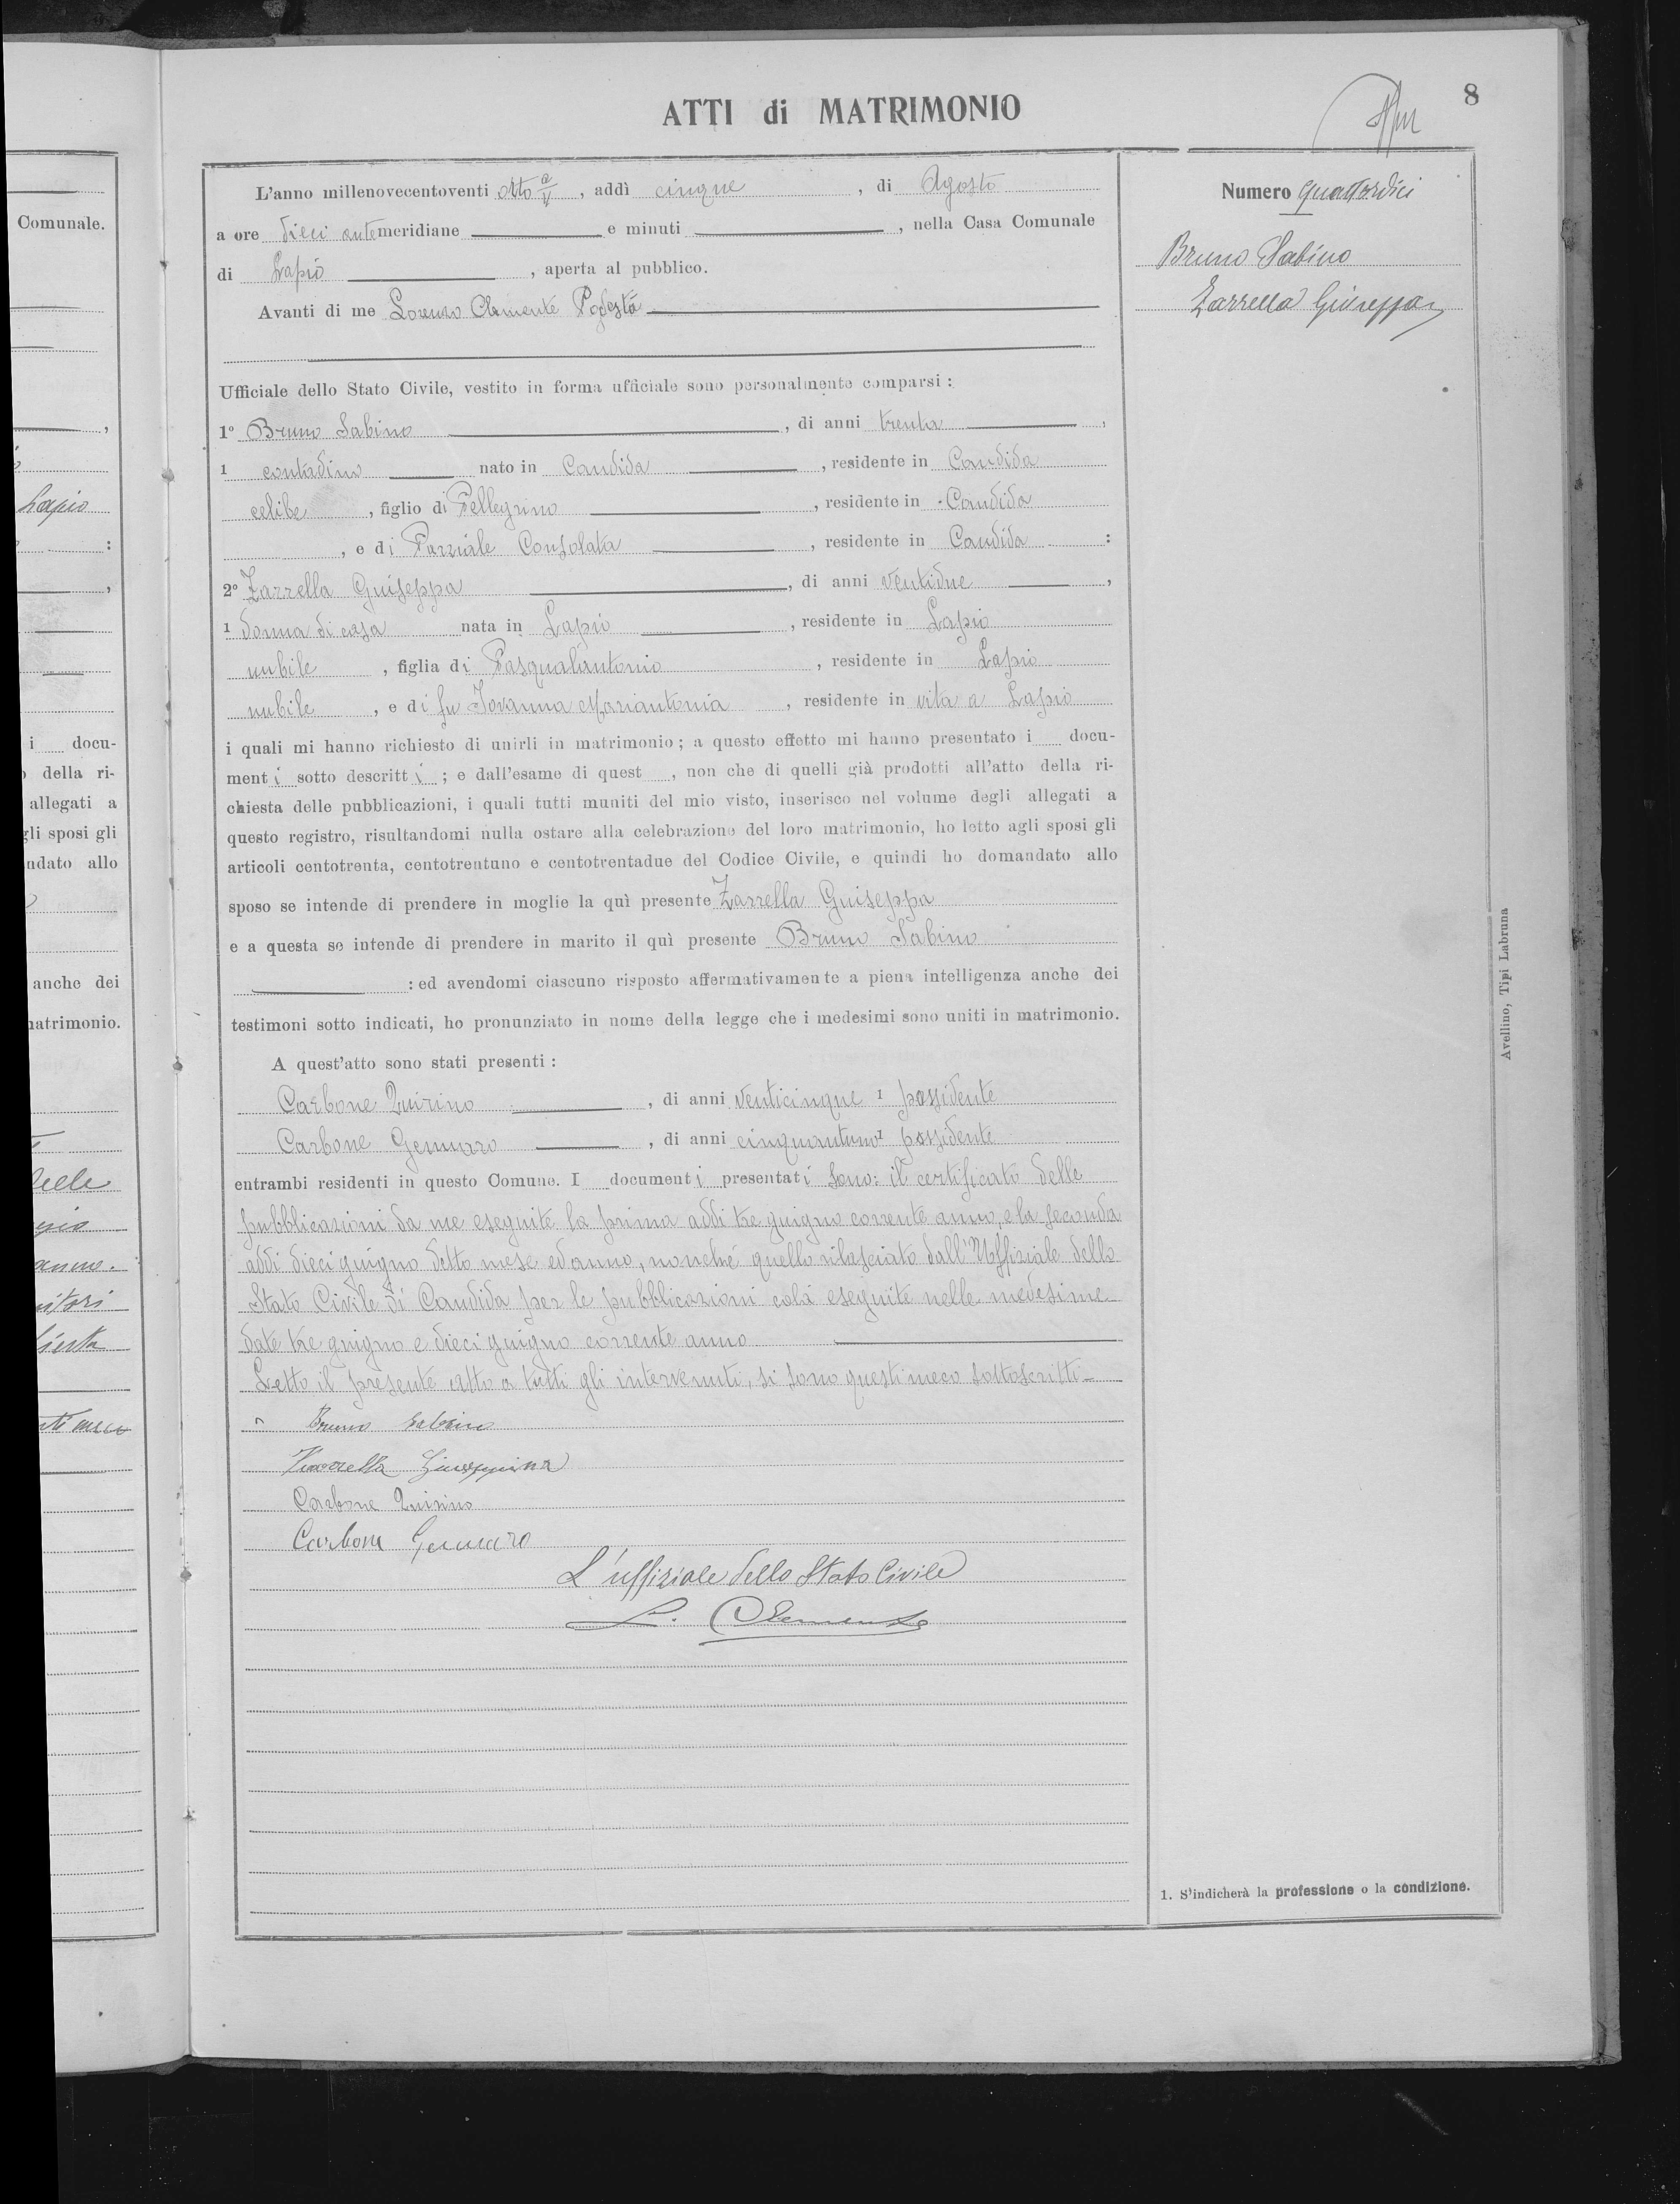 ATTI di MATRIMONIO
8
L'anno millenovecentoventi otto, addì cinque, di Agosto
a ore dieci antemeridiane e minuti, nella Casa Comunale
di Lapio, aperta al pubblico.
Avanti di me Lorenzo Clemente Podestà
Ufficiale dello Stato Civile, vestito in forma ufficiale sono personalmente comparsi :
1° Bruno Sabino, di anni trenta,
1 contadino nato in Candida, residente in Candida
celibe, figlio di Pellegrino, residente in Candida
, e di Parziale Consolata, residente in Candida :
2° Zarrella Guiseppa, di anni ventidue,
1 donna di casa nata in Lapio, residente in Lapio
nubile, figlia di Pasqualantonio, residente in Lapio
nubile, e di fu Iovanna Mariantonia, residente in vita a Lapio
i quali mi hanno richiesto di unirli in matrimonio ; a questo effetto mi hanno presentato i docu-
menti sotto descritti ; e dall'esame di quest , non che di quelli già prodotti all'atto della ri-
chiesta delle pubblicazioni, i quali tutti muniti del mio visto, inserisco nel volume degli allegati a
questo registro, risultandomi nulla ostare alla celebrazione del loro matrimonio, ho letto agli sposi gli
articoli centotrenta, centotrentuno e centotrentadue del Codice Civile, e quindi ho domandato allo
sposo se intende di prendere in moglie la quì presente Zarrella Guiseppa
e a questa se intende di prendere in marito il quì presente Bruno Sabino
: ed avendomi ciascuno risposto affermativamente a piena intelligenza anche dei
testimoni sotto indicati, ho pronunziato in nome della legge che i medesimi sono uniti in matrimonio.
A quest'atto sono stati presenti :
Carbone Quirino, di anni venticinque 1 possidente
Carbone Gennaro, di anni cinquantuno 1 possidente
entrambi residenti in questo Comune. I documenti presentati sono: il certificato delle
pubblicazioni da me eseguite la prima addi tre guigno corrente anno, e la seconda
addi dieci guigno detto mese ed anno, nonché quello rilasciato dall'Uffiziale dello
Stato Civile di Candida per le pubblicazioni colà eseguite nelle medesime
date tre guigno e dieci guigno corrente anno
Letto il presente atto a tutti gli intervenuti, si sono questi meco sottoscritti
Bruno Sabino
Zarrella Giuseppina
Carbone Quirino
Carbone Gennaro
L'uffiziale dello Stato Civile
L. Clemente
Numero quattordici
Bruno Sabino
Zarrella Giuseppa
Avellino, Tipi Labruna
1. S'indicherà la professione o la condizione.
Comunale.
Lapio
:
i docu-
della ri-
allegati a
gli sposi gli
ndato allo
anche dei
matrimonio.
anno.